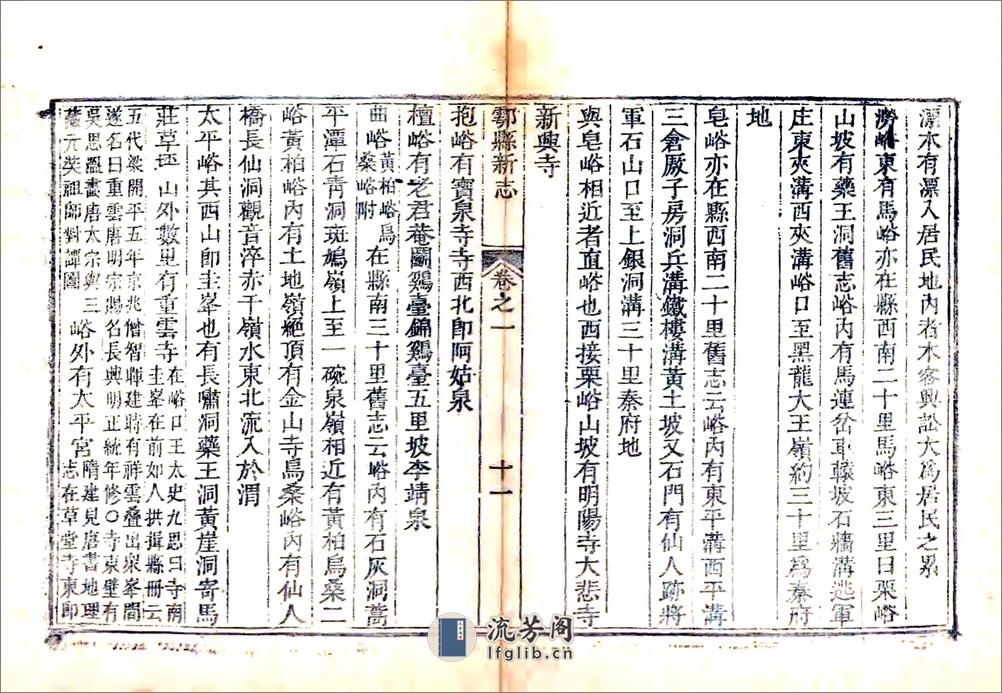 漂木有漂入居民地內者木客興訟大為居民之累
澇峪東有馬峪亦在縣西南二十里馬峪東三里曰栗峪
山坡有藥王洞舊志峪內有馬連岔車轅坡石牆溝逃軍
庄東夾溝西夾溝峪口至黑龍大王嶺約三十里為秦府
地
皂峪亦在縣西南二十里舊志云峪內有東平溝西平溝
三倉厫子房洞兵溝鐵樓溝黃土坡又石門有仙人跡將
軍石山口至上銀洞溝三十里秦府地
與皂峪相近者直峪也西接栗峪山坡有明陽寺大悲寺
新興寺
鄠縣新志
卷之一
十一
抱峪有寶泉寺寺西北即阿姑泉
檀峪有老君菴鬭鷄臺錦鷄臺五里坡李靖泉
曲峪黃柏峪烏桑峪附在縣南三十里舊志云峪內有石灰洞蒿
平潭石青洞斑鳩嶺上至一碗泉嶺相近有黃柏烏桑二
峪黃柏峪內有土地嶺絕頂有金山寺烏桑峪內有仙人
橋長仙洞觀音滓赤干嶺水東北流入於渭
太平峪其西山即圭峯也有長嘯洞藥王洞黃崖洞寄馬
莊草坯山外數里有重雲寺在峪口王太史九思曰寺南圭峯在前如人拱揖縣冊云
五代梁開平五年京兆僧智暉建時有祥雲叠出衆峯間
遂名曰重雲唐明宗賜名長興明正統年修〇寺東壁有
吳思溫畫唐太宗與三藏元奘祖師對譚圖峪外有太平宮隋建見唐書地理志在草堂寺東即
流芳阁
lfglib.cn